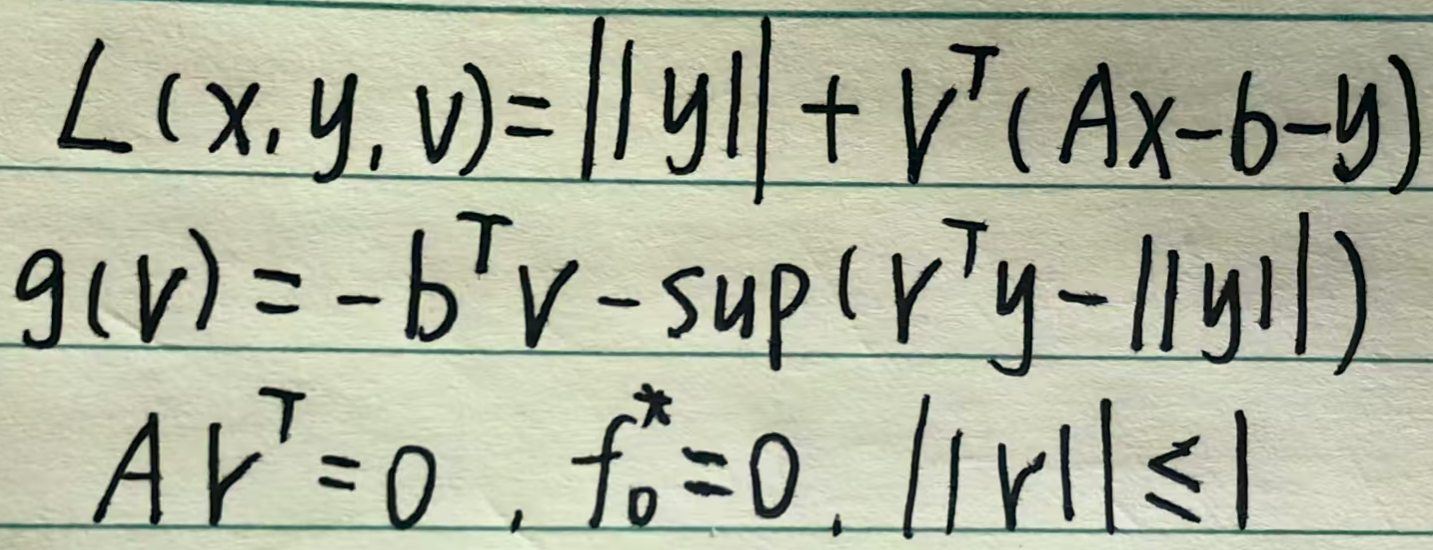 L(x, y, v) = ||y|| + v^T(Ax-b-y)
g(v) = -b^T v - sup(v^T y - ||y||)
Av^T = 0, f_0^* = 0, ||v|| ≤ 1